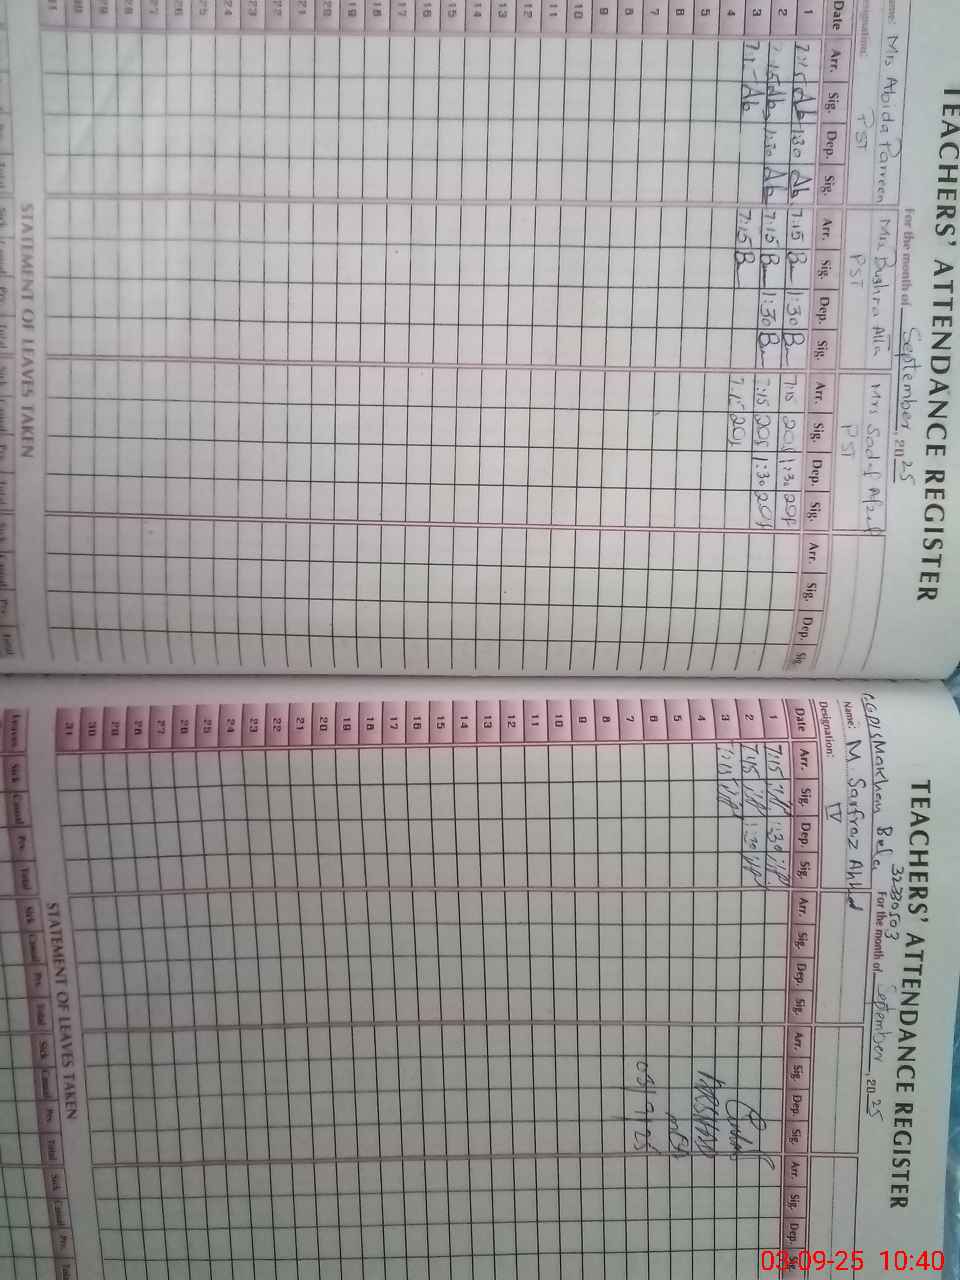 TEACHERS' ATTENDANCE REGISTER
For the month of September, 2025
Name: Mrs Abida Parveen Mrs Bushra Atta Mrs Sadaf Afzal
Designation: PST PST PST
Date Arr. Sig. Dep. Sig. Arr. Sig. Dep. Sig. Arr. Sig. Dep. Sig. Arr. Sig. Dep. Sig.
1 7:15 Ab 1:30 Ab 7:15 1:30 7:15 1:30
2 7:15 Ab 1:30 Ab 7:15 1:30 7:15 1:30
3 Ab 7:15 7:15
4
5
6
7
8
9
10
11
12
13
14
15
16
17
18
19
20
21
22
23
24
25
26
27
28
29
30
31
STATEMENT OF LEAVES TAKEN
Sick Casual Prv. Total Sick Casual Prv. Total Sick Casual Prv. Total
TEACHERS' ATTENDANCE REGISTER
Bela 32330503 For the month of September, 2025
Name: M. Sarfraz Ahmad
Designation: IV
Date Arr. Sig. Dep. Sig. Arr. Sig. Dep. Sig. Arr. Sig. Dep. Sig. Arr. Sig. Dep. Sig.
1 7:15 1:30
2 7:15 1:30
3 7:15
4
5
6
7 03/9/25
8
9
10
11
12
13
14
15
16
17
18
19
20
21
22
23
24
25
26
27
28
29
30
31
STATEMENT OF LEAVES TAKEN
Leaves Sick Casual Prv. Total Sick Casual Prv. Total Sick Casual Prv. Total Sick Casual Prv. Total
03-09-25 10:40